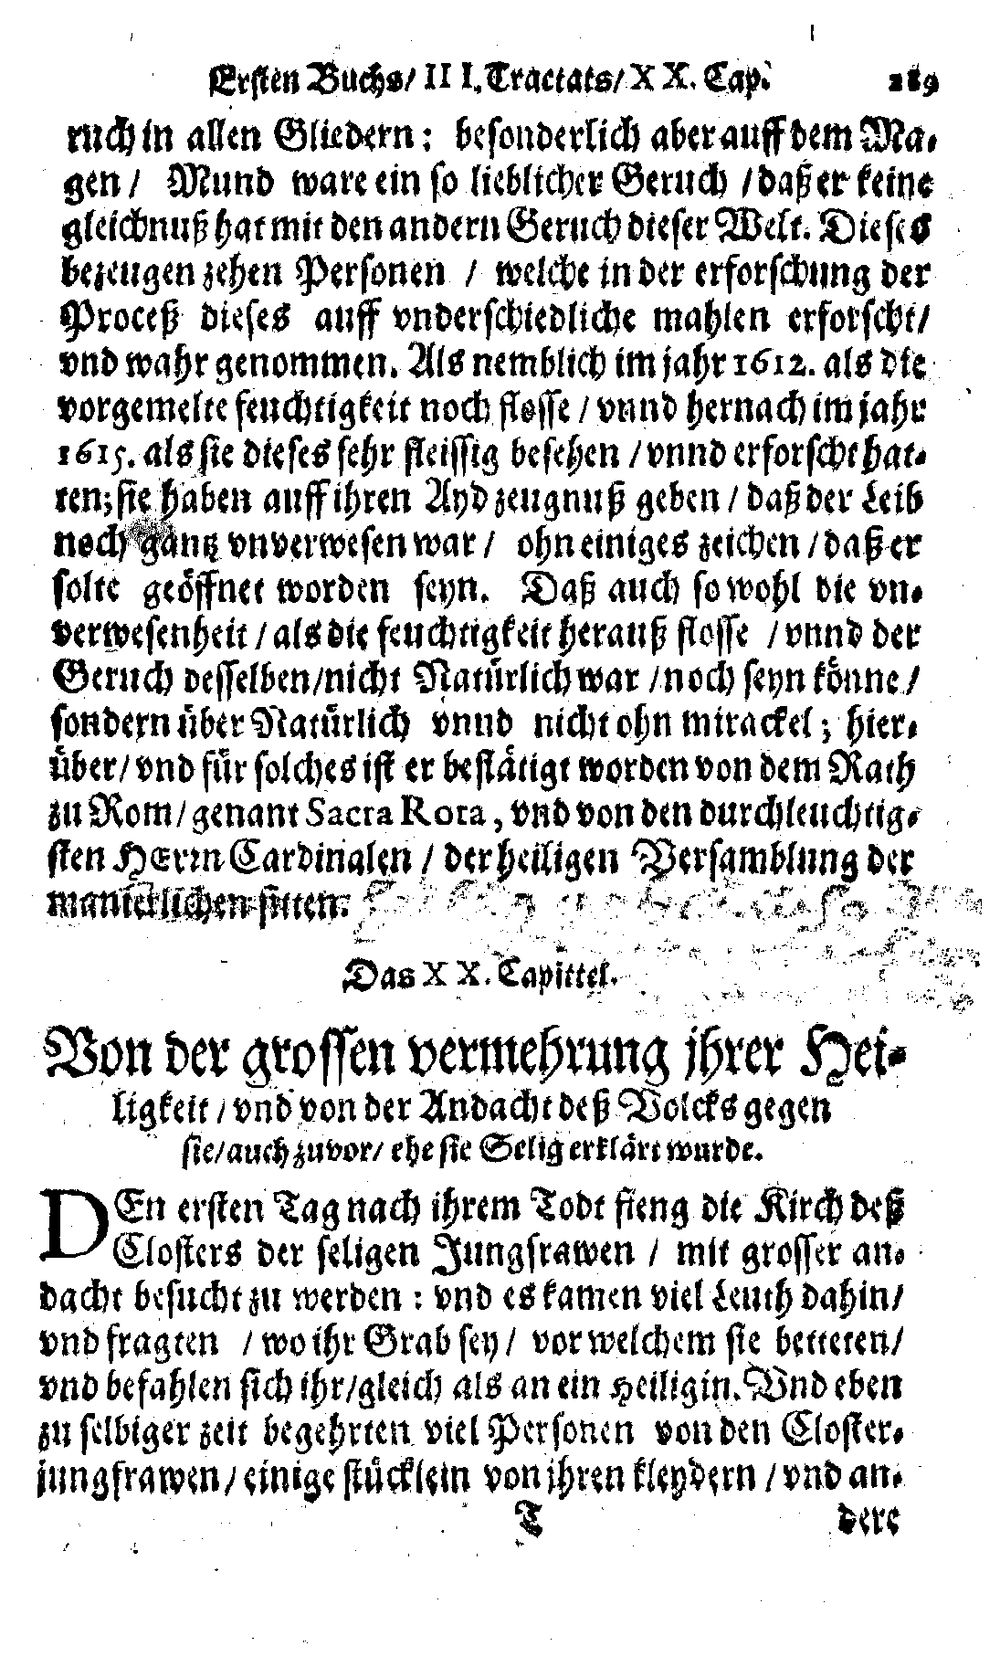 Ersten Buchs/ III. Tractats/ XX. Cap. 289
ruch in allen Gliedern: besonderlich aber auff dem Ma-
gen / Mund ware ein so lieblicher Geruch / daß er keine
gleichnuß hat mit den andern Geruch dieser Welt. Dieses
bezeugen zehen Personen / welche in der erforschung der
Proceß dieses auff vnderschiedliche mahlen erforscht/
vnd wahr genommen. Als nemblich im jahr 1612. als die
vorgemelte feuchtigkeit noch flosse / vnnd hernach im jahr
1615. als sie dieses sehr fleissig besehen / vnnd erforscht hat-
ten; sie haben auff ihren Ayd zeugnuß geben / daß der Leib
noch gantz vnverwesen war / ohn einiges zeichen / daß er
solte geöffnet worden seyn. Daß auch so wohl die vn-
verwesenheit / als die feuchtigkeit herauß flosse / vnnd der
Geruch desselben/nicht Natürlich war / noch seyn könne /
sondern über Natürlich vnnd nicht ohn mirackel; hier-
über/ vnd für solches ist er bestätigt worden von dem Rath
zu Rom/ genant Sacra Rota, vnd von den durchleuchtig-
sten HErrn Cardinalen / der heiligen Versamblung der
manierlichen sitten.
Das XX. Capittel.
Von der grossen vermehrung jhrer Hei-
ligkeit / vnd von der Andacht deß Volcks gegen
sie/ auch zuvor/ ehe sie Selig erklärt wurde.
DEn ersten Tag nach ihrem Todt fieng die Kirch deß
Closters der seligen Jungfrawen / mit grosser an-
dacht besucht zu werden : vnd es kamen viel Leuth dahin/
vnd fragten / wo ihr Grab sey / vor welchem sie betteten/
vnd befahlen sich ihr/gleich als an ein Heiligin. Vnd eben
zu selbiger zeit begehrten viel Personen von den Closter-
jungfrawen/ einige stücklein von jhren kleydern / vnd an-
T dere